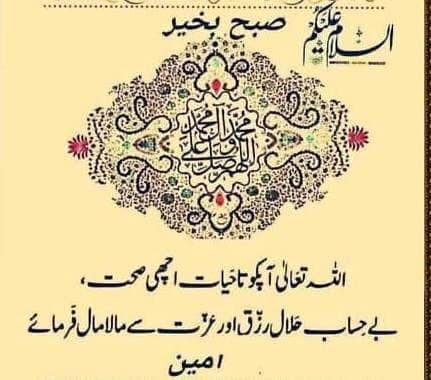 السلام علیکم
صبح بخیر
اللھم صل علی محمد وآل محمد
اللہ تعالیٰ آپکو تاحیات اچھی صحت،
بے حساب حلال رزق اور عزت سے مالا مال فرمائے
امین